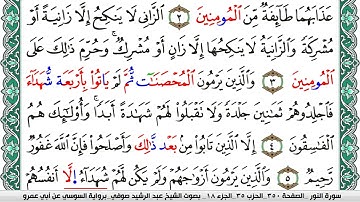 عَذَابَهُمَا طَآئِفَةٌ مِّنَ الْمُومِنِينَ ٢ الزَّانِي لَا يَنكِحُ إِلَّا زَانِيَةً أَوْ
مُشْرِكَةً وَالزَّانِيَةُ لَا يَنكِحُهَا إِلَّا زَانٍ أَوْ مُشْرِكٌ وَحُرِّمَ ذَٰلِكَ عَلَى
الْمُومِنِينَ ٣ وَالَّذِينَ يَرْمُونَ الْمُحْصَنَٰت ثُّمَّ لَمْ يَاتُوا بِأَرْبَعَةِ شُهَدَآءَ
فَاجْلِدُوهُمْ ثَمَٰنِينَ جَلْدَةً وَلَا تَقْبَلُوا لَهُمْ شَهَٰدَةً أَبَدًا وَأُولَٰٓئِكَ هُمُ
الْفَٰسِقُونَ ٤ إِلَّا الَّذِينَ تَابُوا مِن بَعْد ذَّٰلِكَ وَأَصْلَحُوا فَإِنَّ اللَّهَ غَفُورٌ
رَّحِيمٌ ٥ وَالَّذِينَ يَرْمُونَ أَزْوَٰجَهُمْ وَلَمْ يَكُن لَّهُمْ شُهَدَآءُ إِلَّا أَنفُسُهُمْ
سورة النور . الصفحة ٣٥٠ . الجزء ١٨ . بصوت الشيخ عبد الرشيد صوفي . برواية السوسي عن أبي عمرو